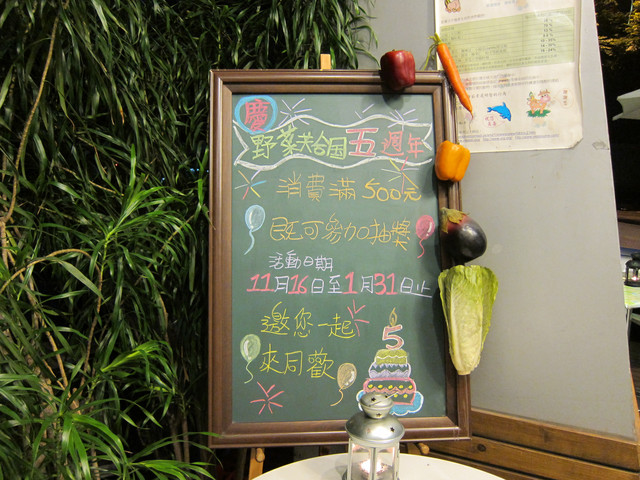 慶
野菜共合国五週年
消費滿500元
既可參加抽獎
活動日期
11月16日至1月31日止
邀您一起
來同歡
5